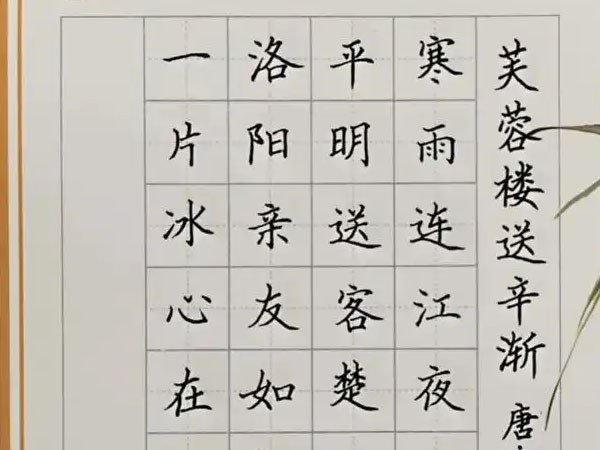 芙蓉楼送辛渐 唐
寒雨连江夜
平明送客楚
洛阳亲友如
一片冰心在